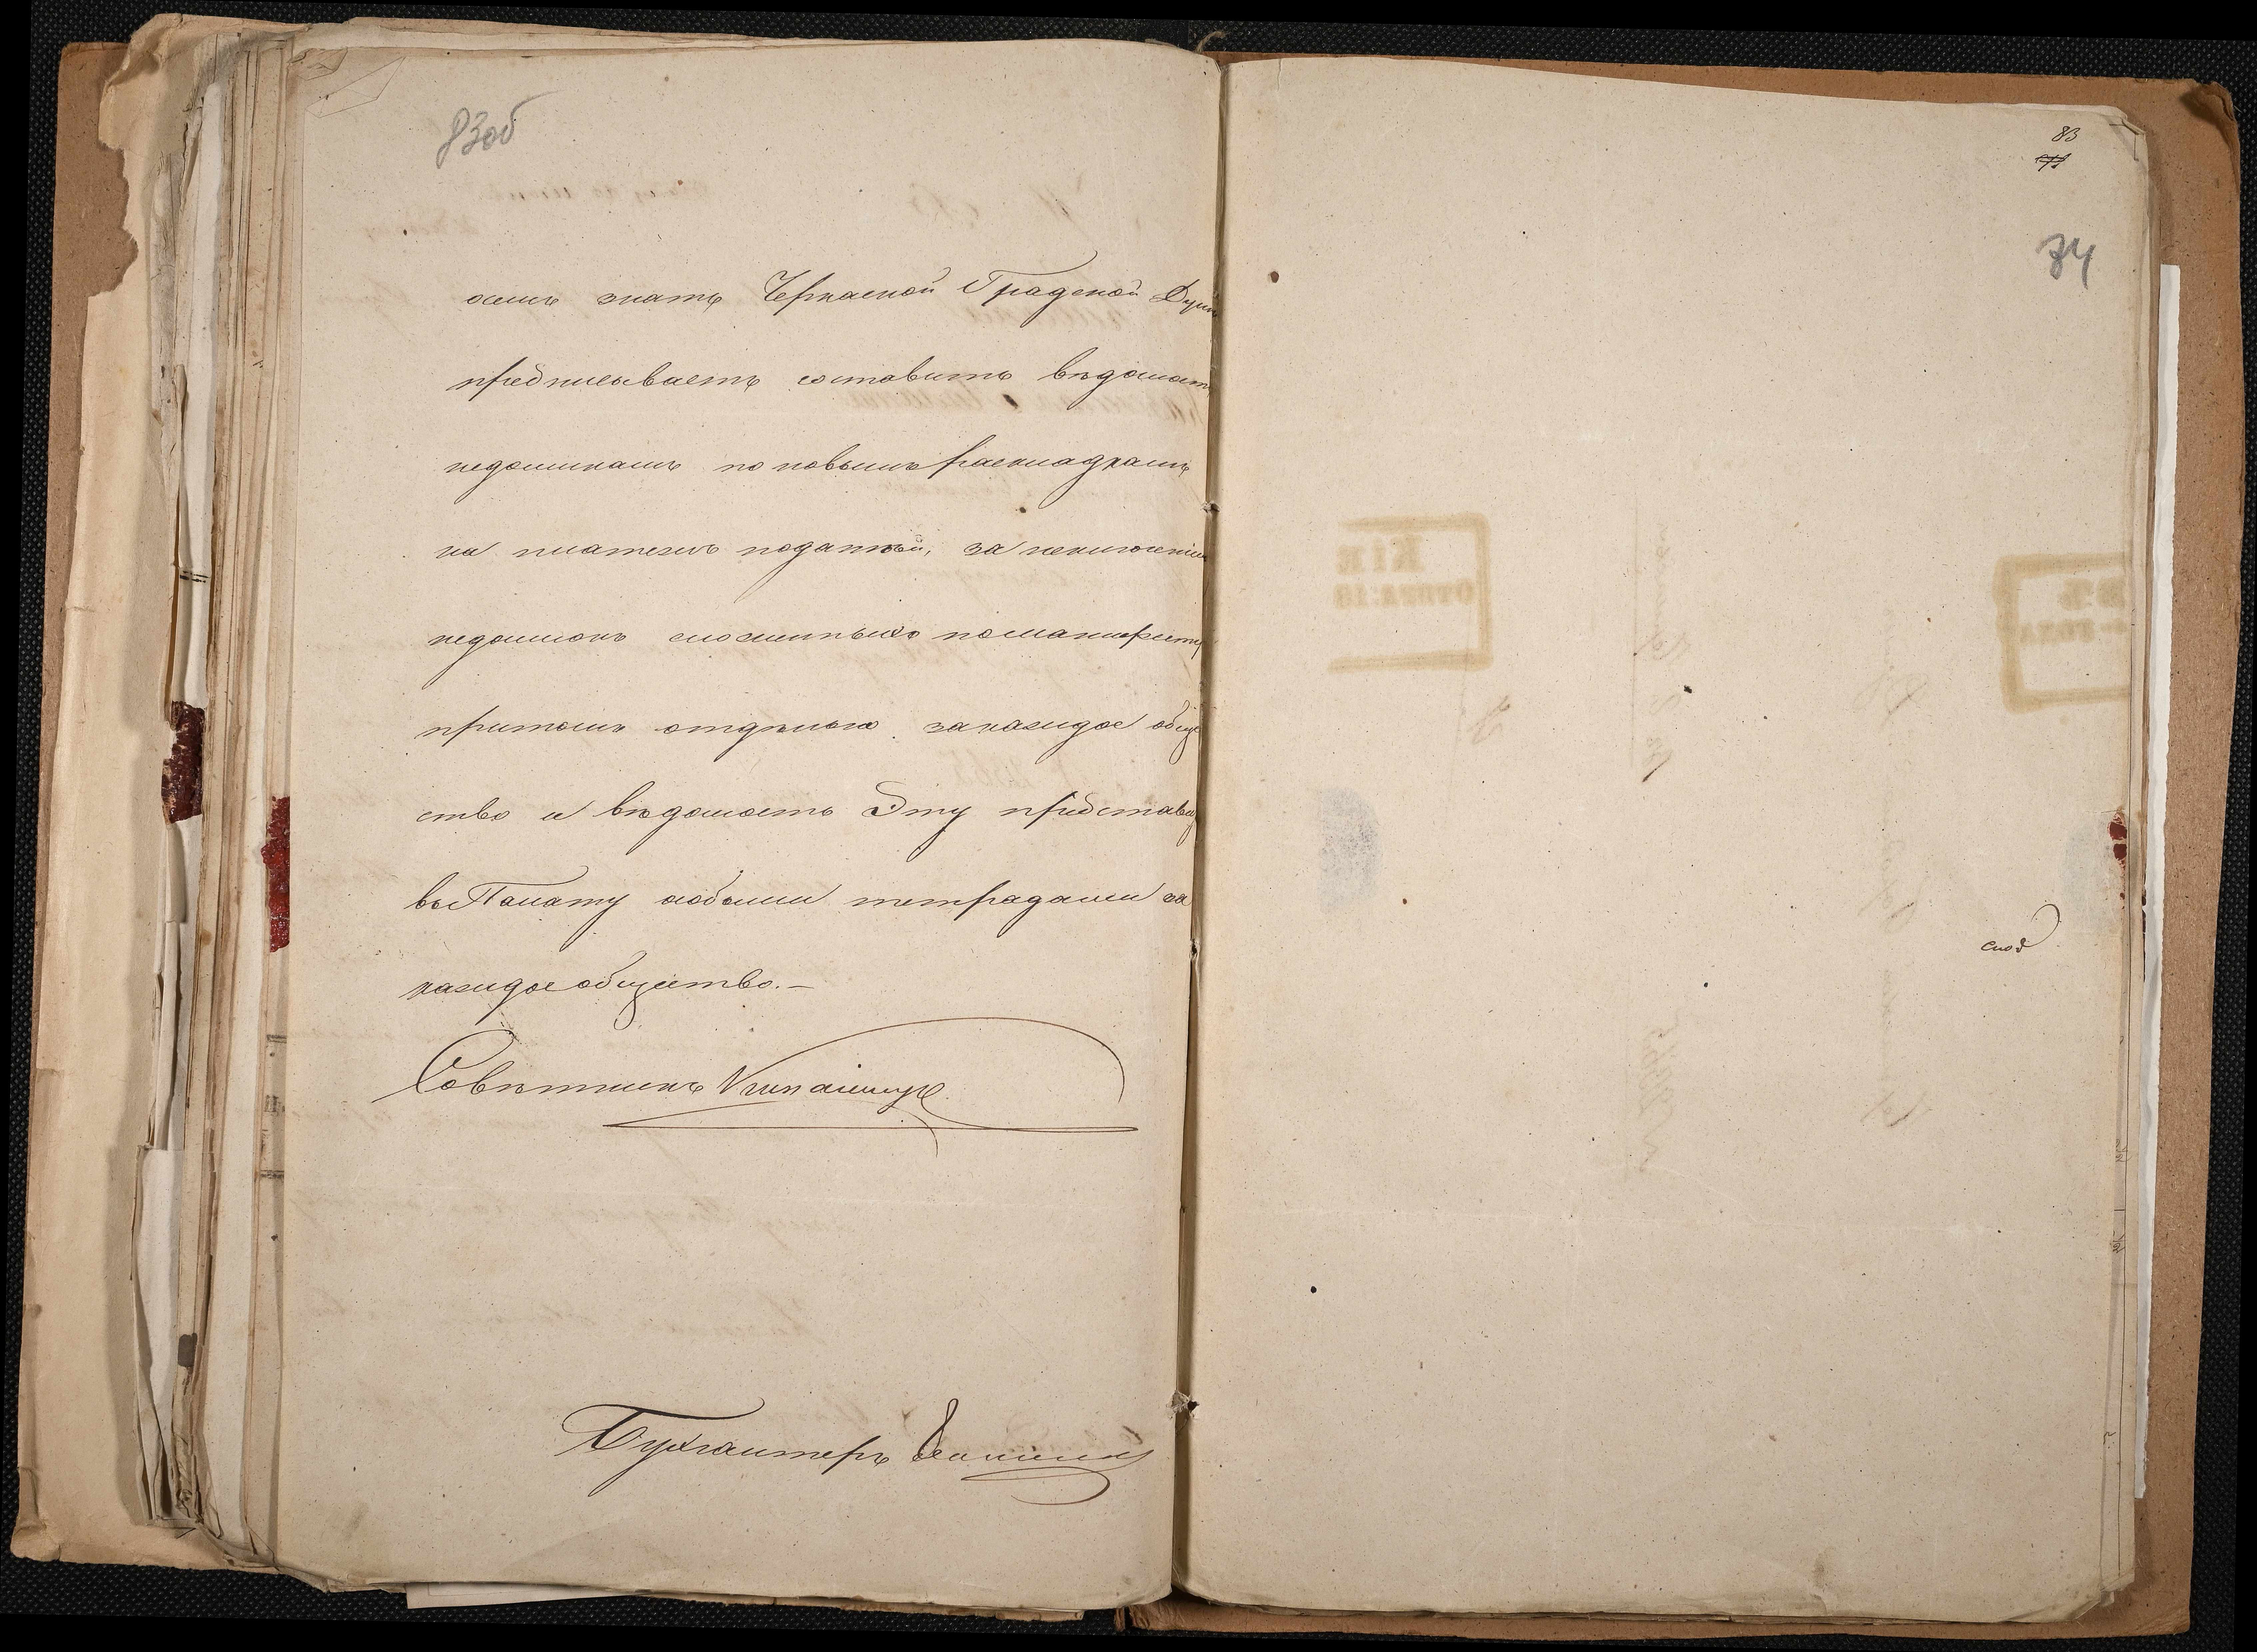 83об
осемъ знать Черкаской Градской Думѣ
предписываетъ составить вѣдомость
недоимкамъ по новымъ раскладкамъ
на платежъ податей, за
недоимокъ сложенныхъ по манифесту
притомъ отдѣльно за каждое обще
ство и вѣдомость Эту представить
въ Палату особыми тетрадами за
каждое общество.—
Совѣтникъ
Бухгалтеръ
83
84